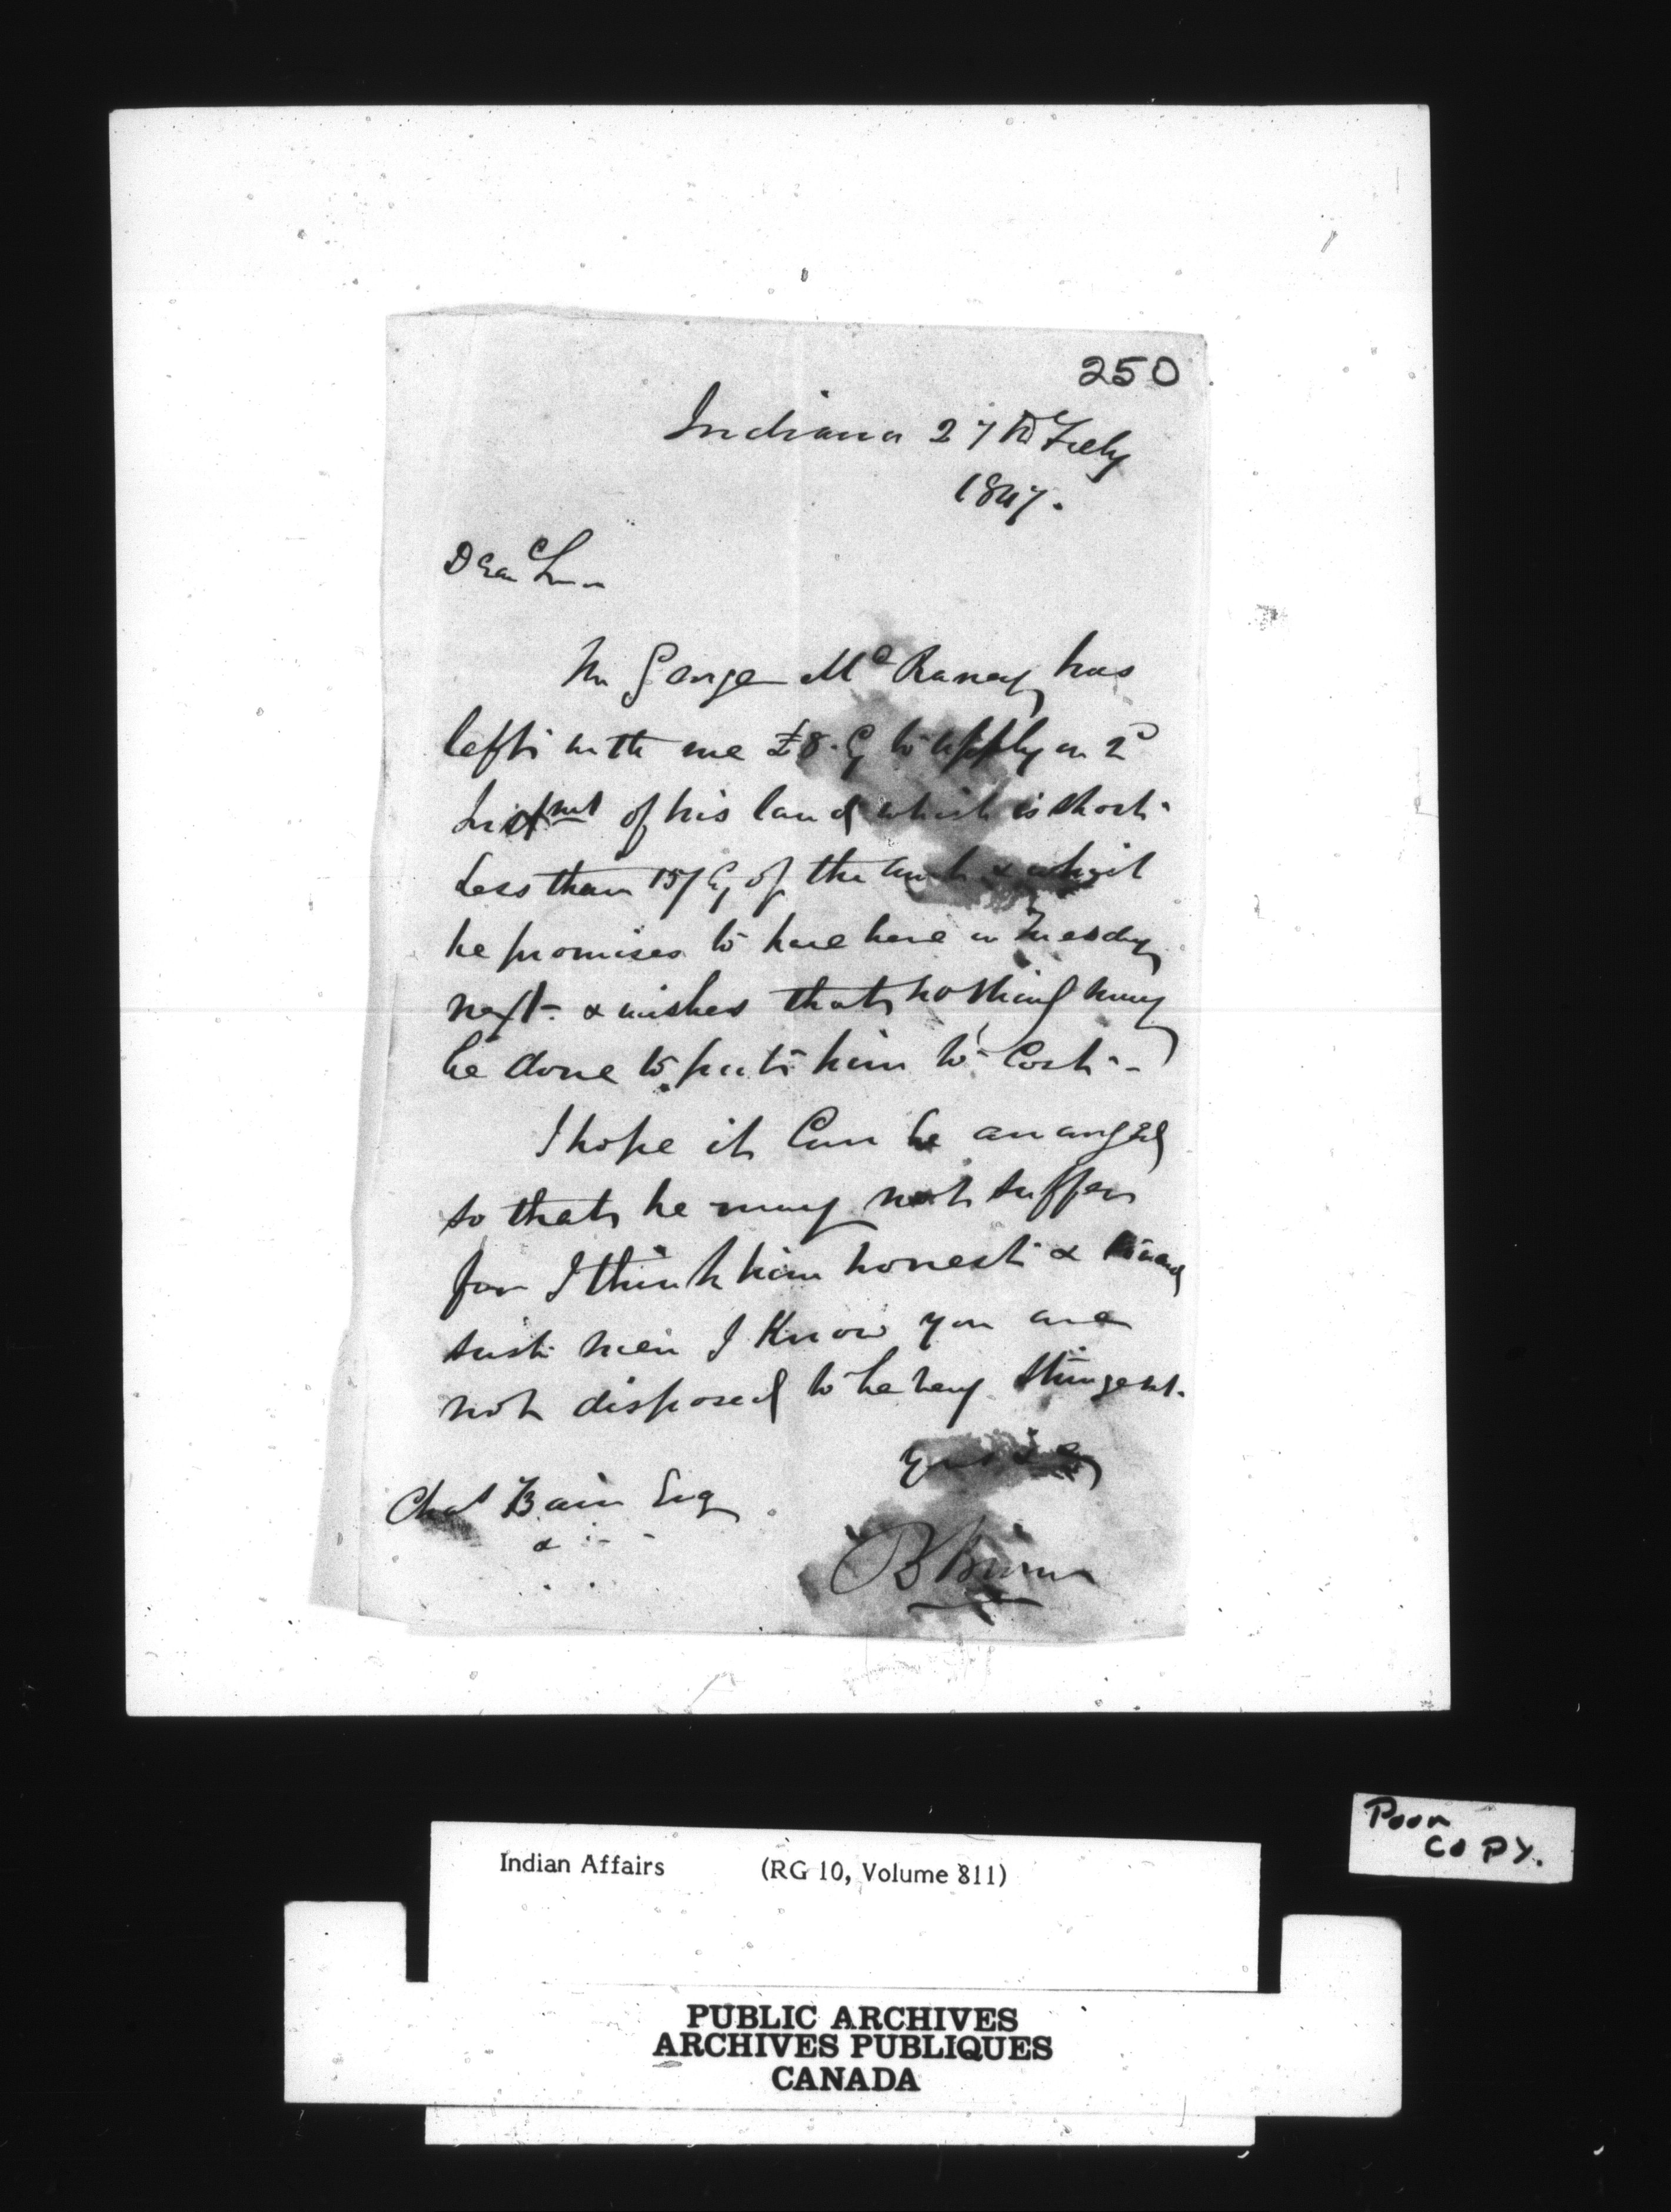 250
Indiana 27th Feby
1847.
Dear Sir
Mr George McRaney has
left with me £8. Cy to apply on 2d
Instmt of his land which is short
less than 15/ Cy of the amt & which
he promises to have here on Tuesday
next - & wishes that nothing may
be done to put him to Cost -
I hope it Can be arranged
so that he may not suffer
for I think him honest &
such men I Know you are
not disposed to be very stringent.
Yours
Chas Bain Esq
&
B
Poor
COPY.
Indian Affairs (RG 10, Volume 811)
PUBLIC ARCHIVES
ARCHIVES PUBLIQUES
CANADA